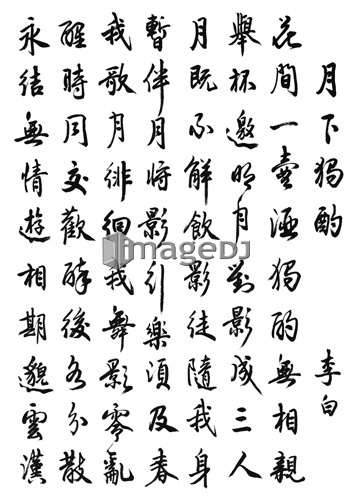 月下獨酌 李白
花間一壺酒獨酌無相親
舉杯邀明月對影成三人
月既不解飲影徒隨我身
暫伴月將影行樂須及春
我歌月徘徊我舞影零亂
醒時同交歡醉後各分散
永結無情遊相期邈雲漢
imageDJ